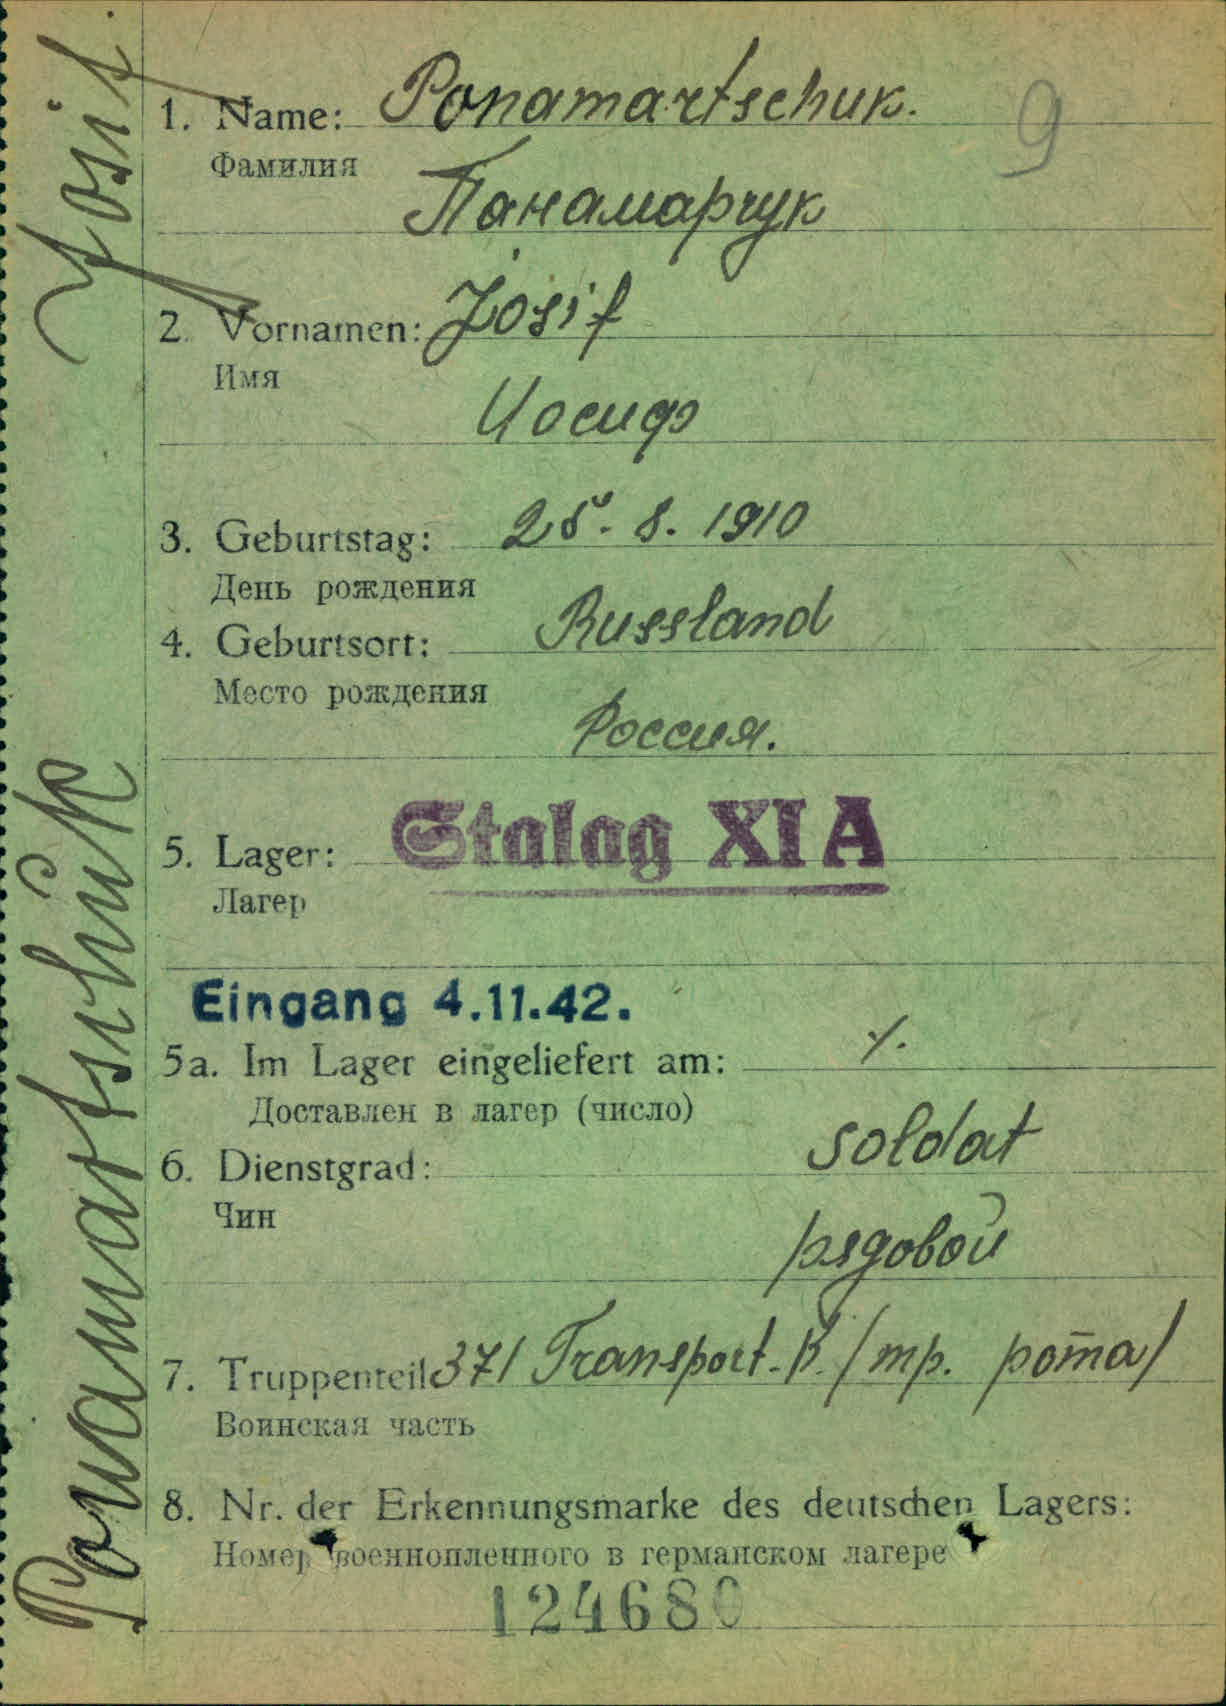 Ponamartschuk Josif
1. Name: Ponamartschuk.
9
Фамилия
Панамарчук
2. Vornamen: Josif
Имя
Иосиф
3. Geburtstag: 25. 8. 1910
День рождения
4. Geburtsort: Russland
Место рождения
Россия.
5. Lager: Stalag XI A
Лагер
Eingang 4.11.42.
5a. Im Lager eingeliefert am: ./.
Доставлен в лагер (число)
6. Dienstgrad: soldat
Чин
рядовой
7. Truppenteil: 371 Transport. K. /тр. рота/
Воинская часть
8. Nr. der Erkennungsmarke des deutschen Lagers:
Номер военнопленного в германском лагере
124680